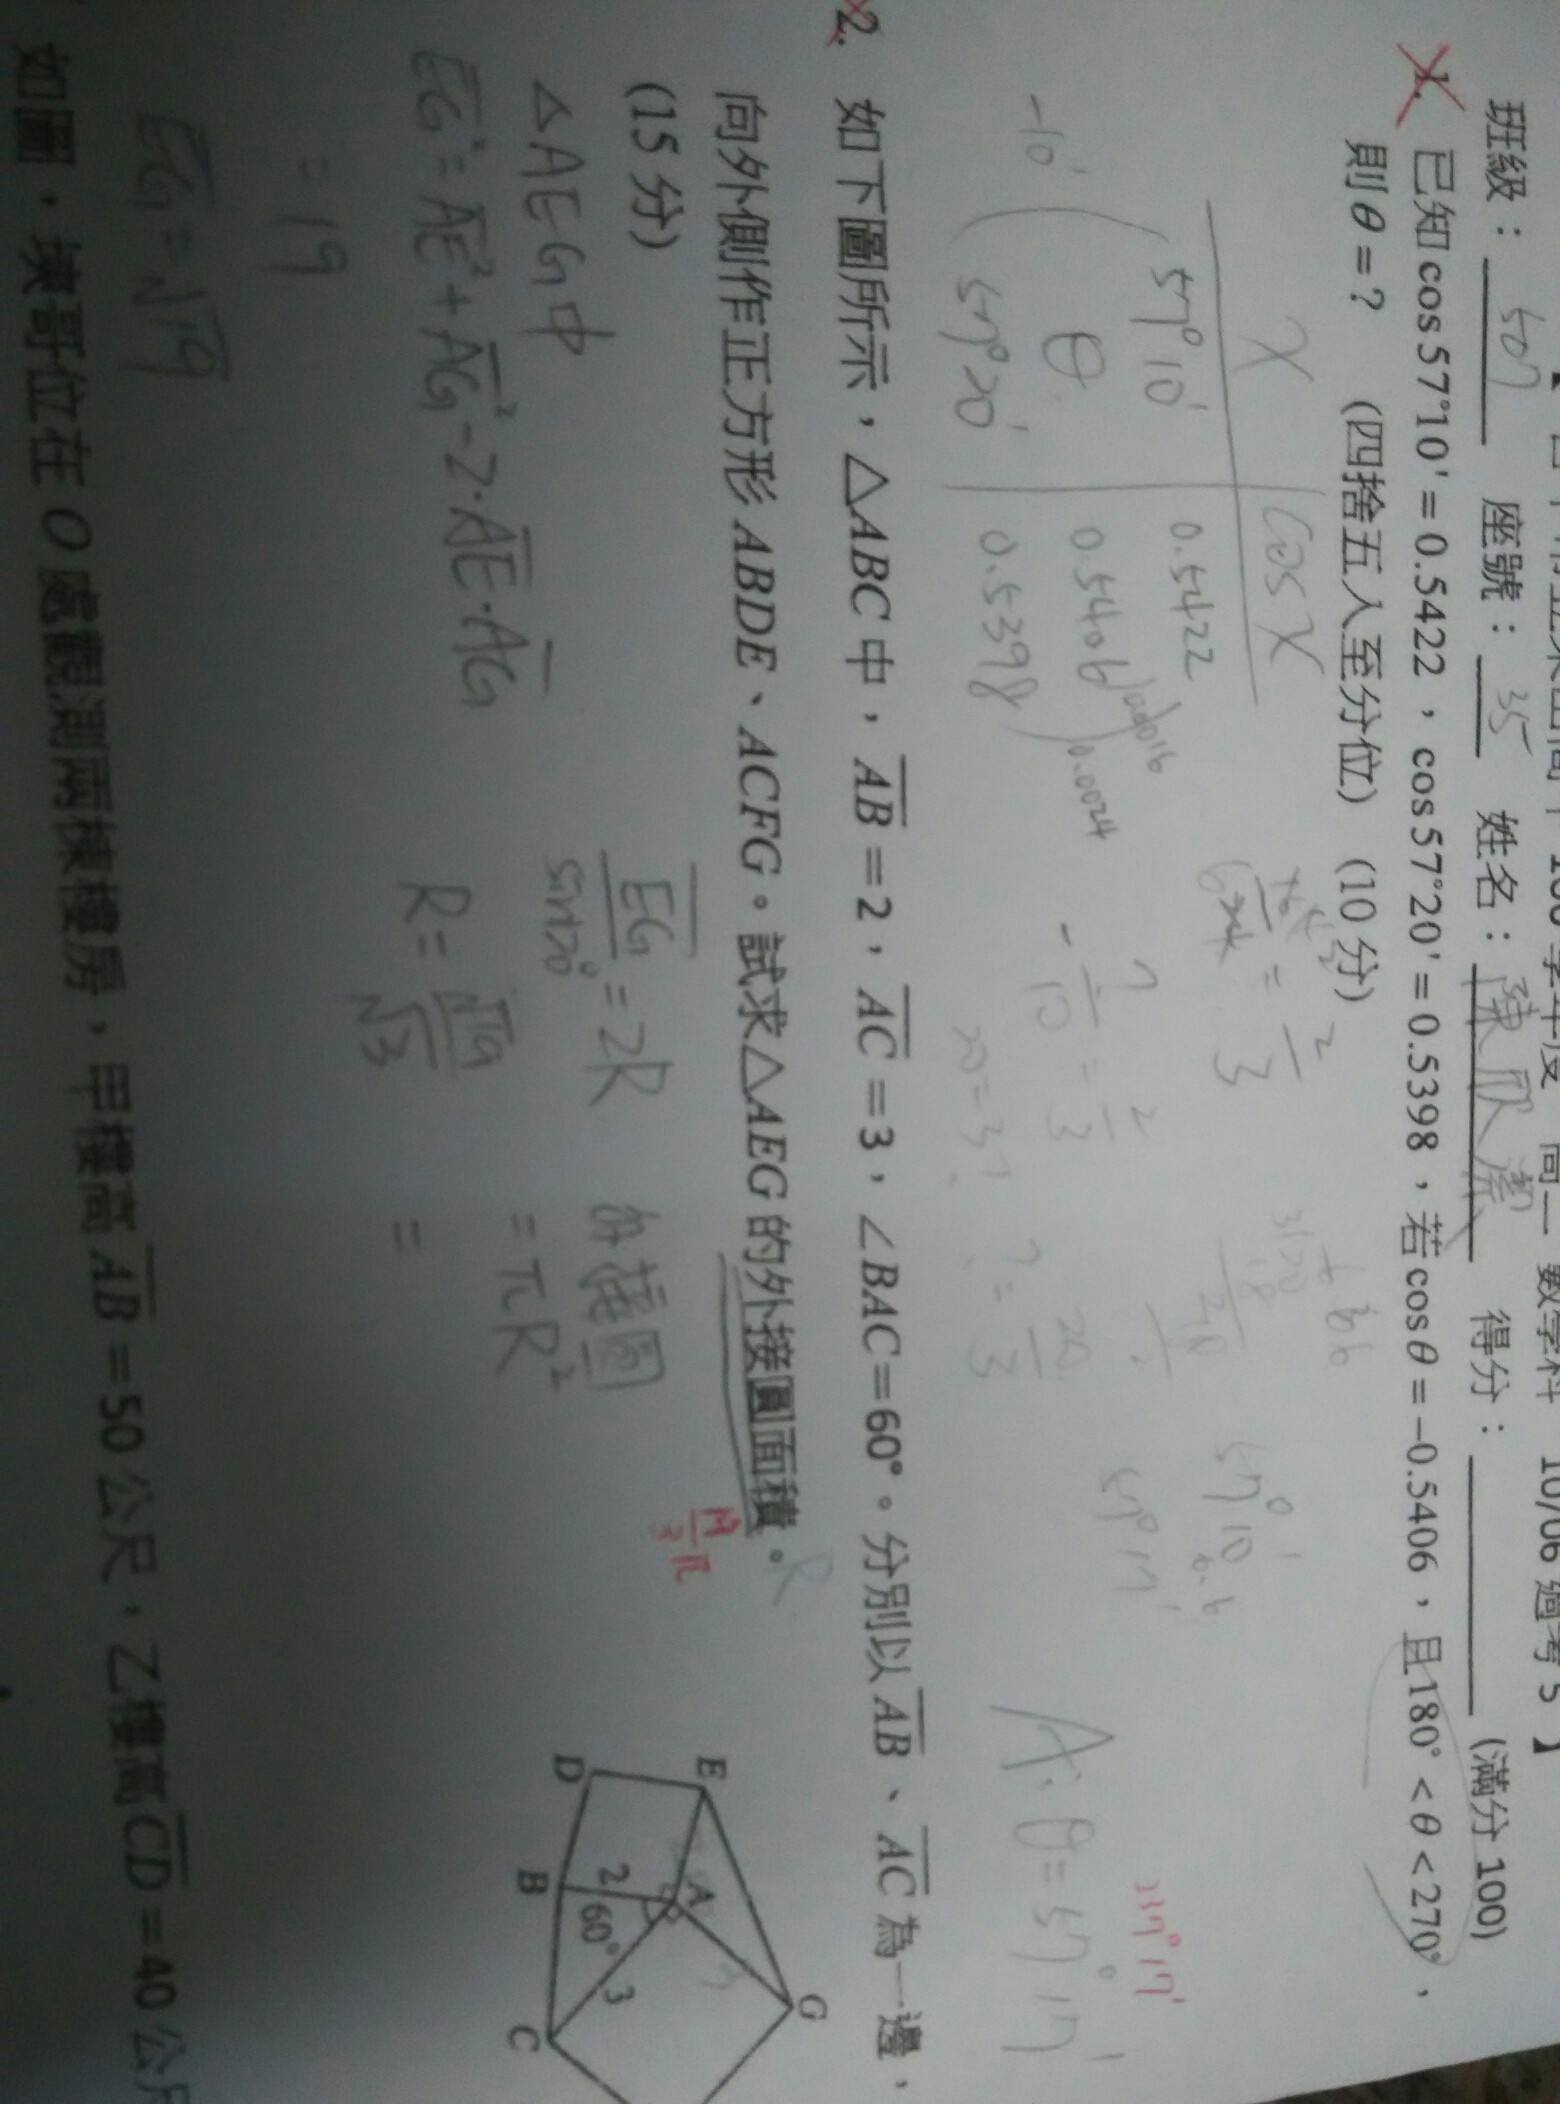 班級：507 座號：35 姓名：陳欣 得分： (滿分 100)
1. 已知cos57°10'=0.5422，cos57°20'=0.5398，若cosθ=−0.5406，且180°<θ<270°，
則θ=? (四捨五入至分位) (10分)
x cosx
57°10' 0.5422
θ 0.5406
57°20' 0.5398
-10'
0.0016
0.0024
= 2/3
?/-10 = 2/3
20=3?
?= 20/3
57°10'
6.6
57°17'
237°17'
A: θ=57°17'
2. 如下圖所示，△ABC中，AB=2，AC=3，∠BAC=60°。分別以AB、AC為一邊，
向外側作正方形ABDE、ACFG。試求△AEG的外接圓面積。
(15分)
19/3 π
R
△AEG中
EG²=AE²+AG²-2·AE·AG
=19
EG=√19
EG/sin120°=2R
R=√19/√3
外接圓
=πR²
=
E
D
A
G
2
60°
3
3
B
C
如圖，璞哥位在O處觀測兩棟樓房，甲樓高AB=50公尺，乙樓高CD=40公